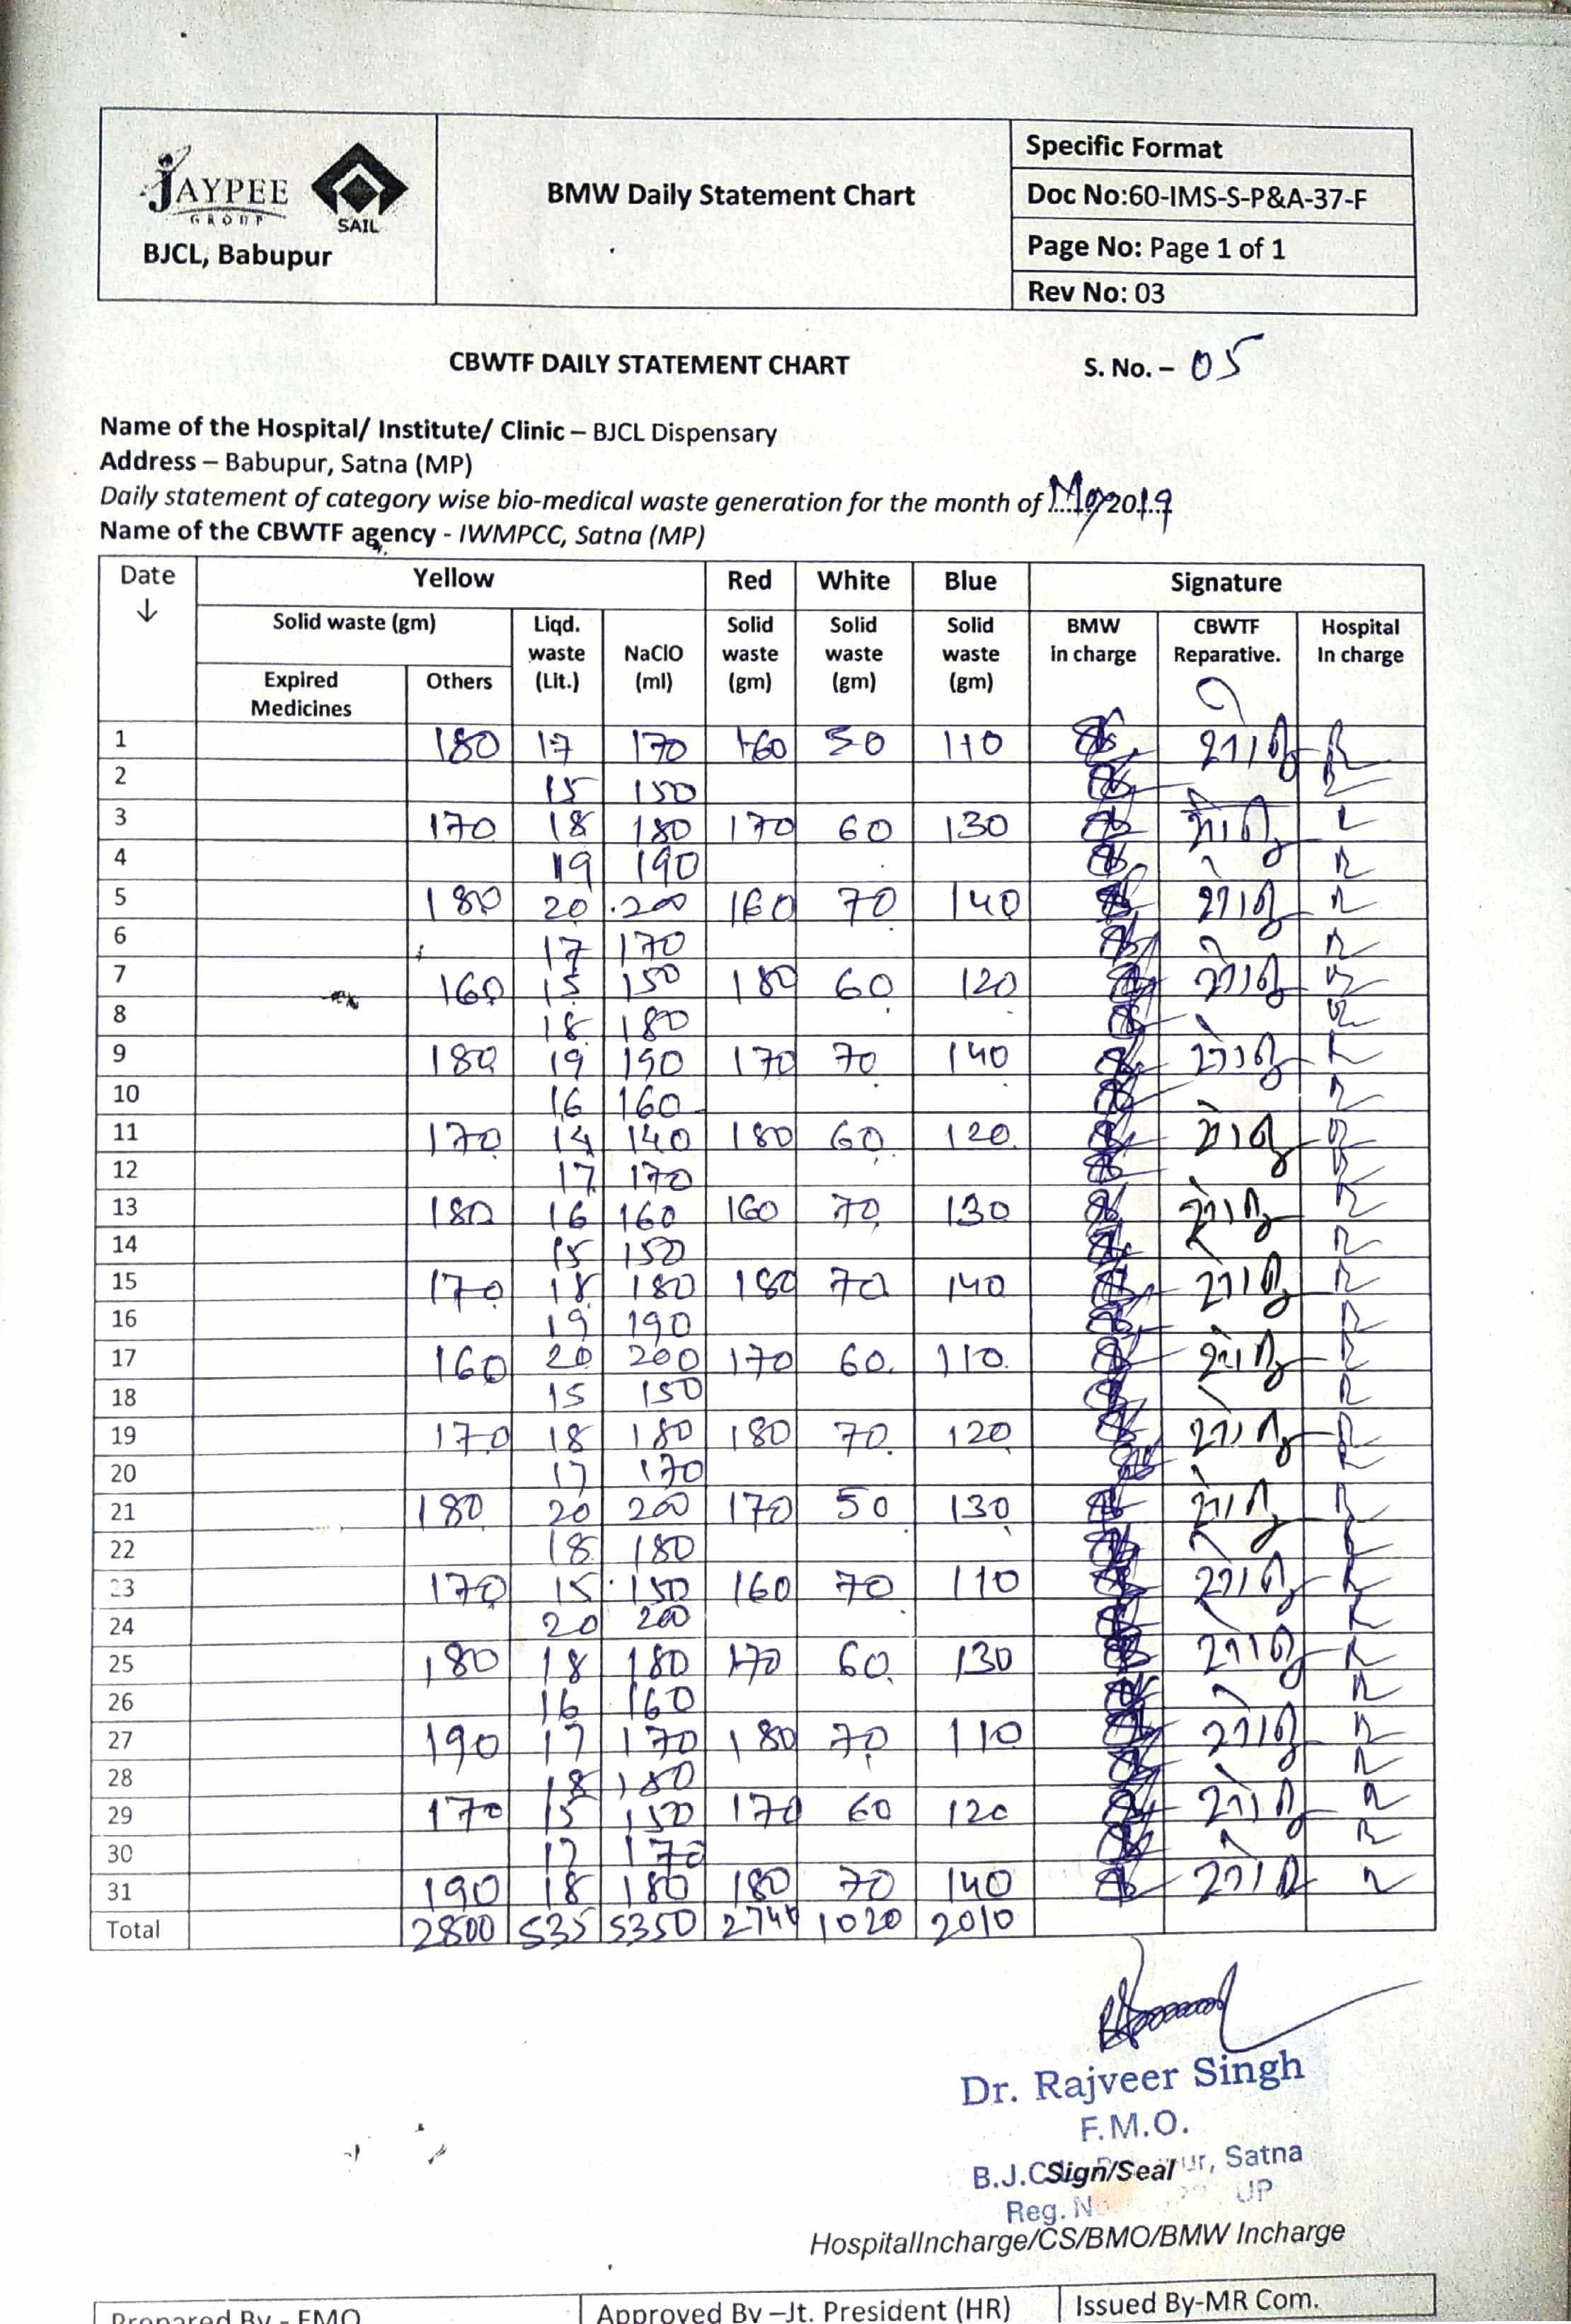 JAYPEE
GROUP
SAIL
BJCL, Babupur
BMW Daily Statement Chart
Specific Format
Doc No:60-IMS-S-P&A-37-F
Page No: Page 1 of 1
Rev No: 03
CBWTF DAILY STATEMENT CHART S. No. – 05
Name of the Hospital/ Institute/ Clinic – BJCL Dispensary
Address – Babupur, Satna (MP)
Daily statement of category wise bio-medical waste generation for the month of May 2019
Name of the CBWTF agency - IWMPCC, Satna (MP)
Date ↓ Yellow Red White Blue Signature
Solid waste (gm) Liqd. waste (Lit.) NaClO (ml) Solid waste (gm) Solid waste (gm) Solid waste (gm) BMW in charge CBWTF Reparative. Hospital In charge
Expired Medicines Others
1 180 17 170 160 50 110
2 15 150
3 170 18 180 170 60 130
4 19 190
5 180 20 200 160 70 140
6 17 170
7 160 15 150 180 60 120
8 18 180
9 180 19 190 170 70 140
10 16 160
11 170 14 140 180 60 120
12 17 170
13 180 16 160 160 70 130
14 15 150
15 170 18 180 180 70 140
16 19 190
17 160 20 200 170 60 110
18 15 150
19 170 18 180 180 70 120
20 17 170
21 180 20 200 170 50 130
22 18 180
23 170 15 150 160 70 110
24 20 200
25 180 18 180 170 60 130
26 16 160
27 190 17 170 180 70 110
28 18 180
29 170 15 150 170 60 120
30 17 170
31 190 18 180 180 70 140
Total 2800 535 5350 2740 1020 2010
Dr. Rajveer Singh
F.M.O.
B.J.C Sign/Seal Satna
Reg. No UP
HospitalIncharge/CS/BMO/BMW Incharge
Prepared By - FMO Approved By –Jt. President (HR) Issued By-MR Com.